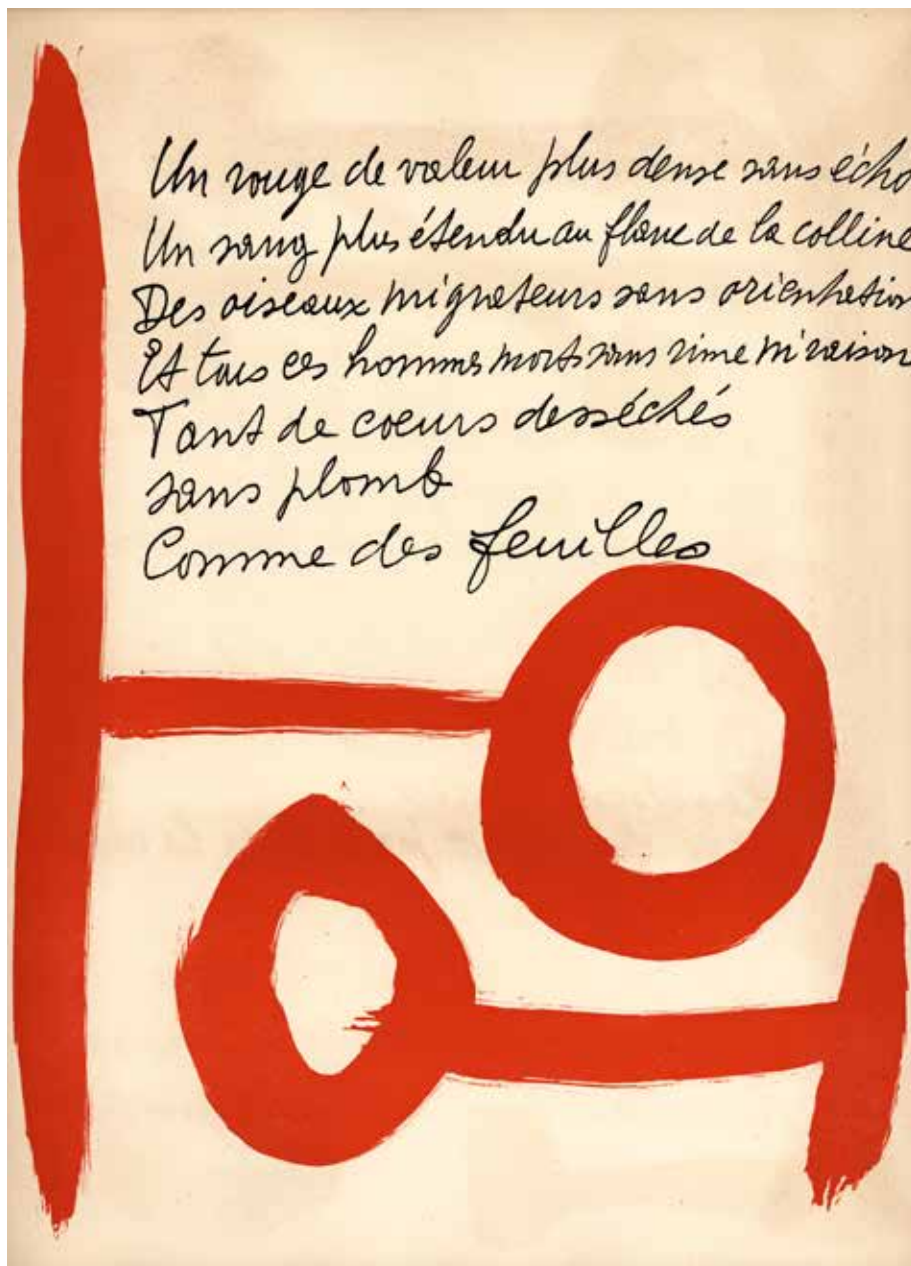 Un rouge de valeur plus dense sans écho
Un sang plus étendu au flanc de la colline
Des oiseaux migrateurs sans orientation
Et tous ces hommes morts sans rime ni raison
Tant de coeurs desséchés
sans plomb
Comme des feuilles